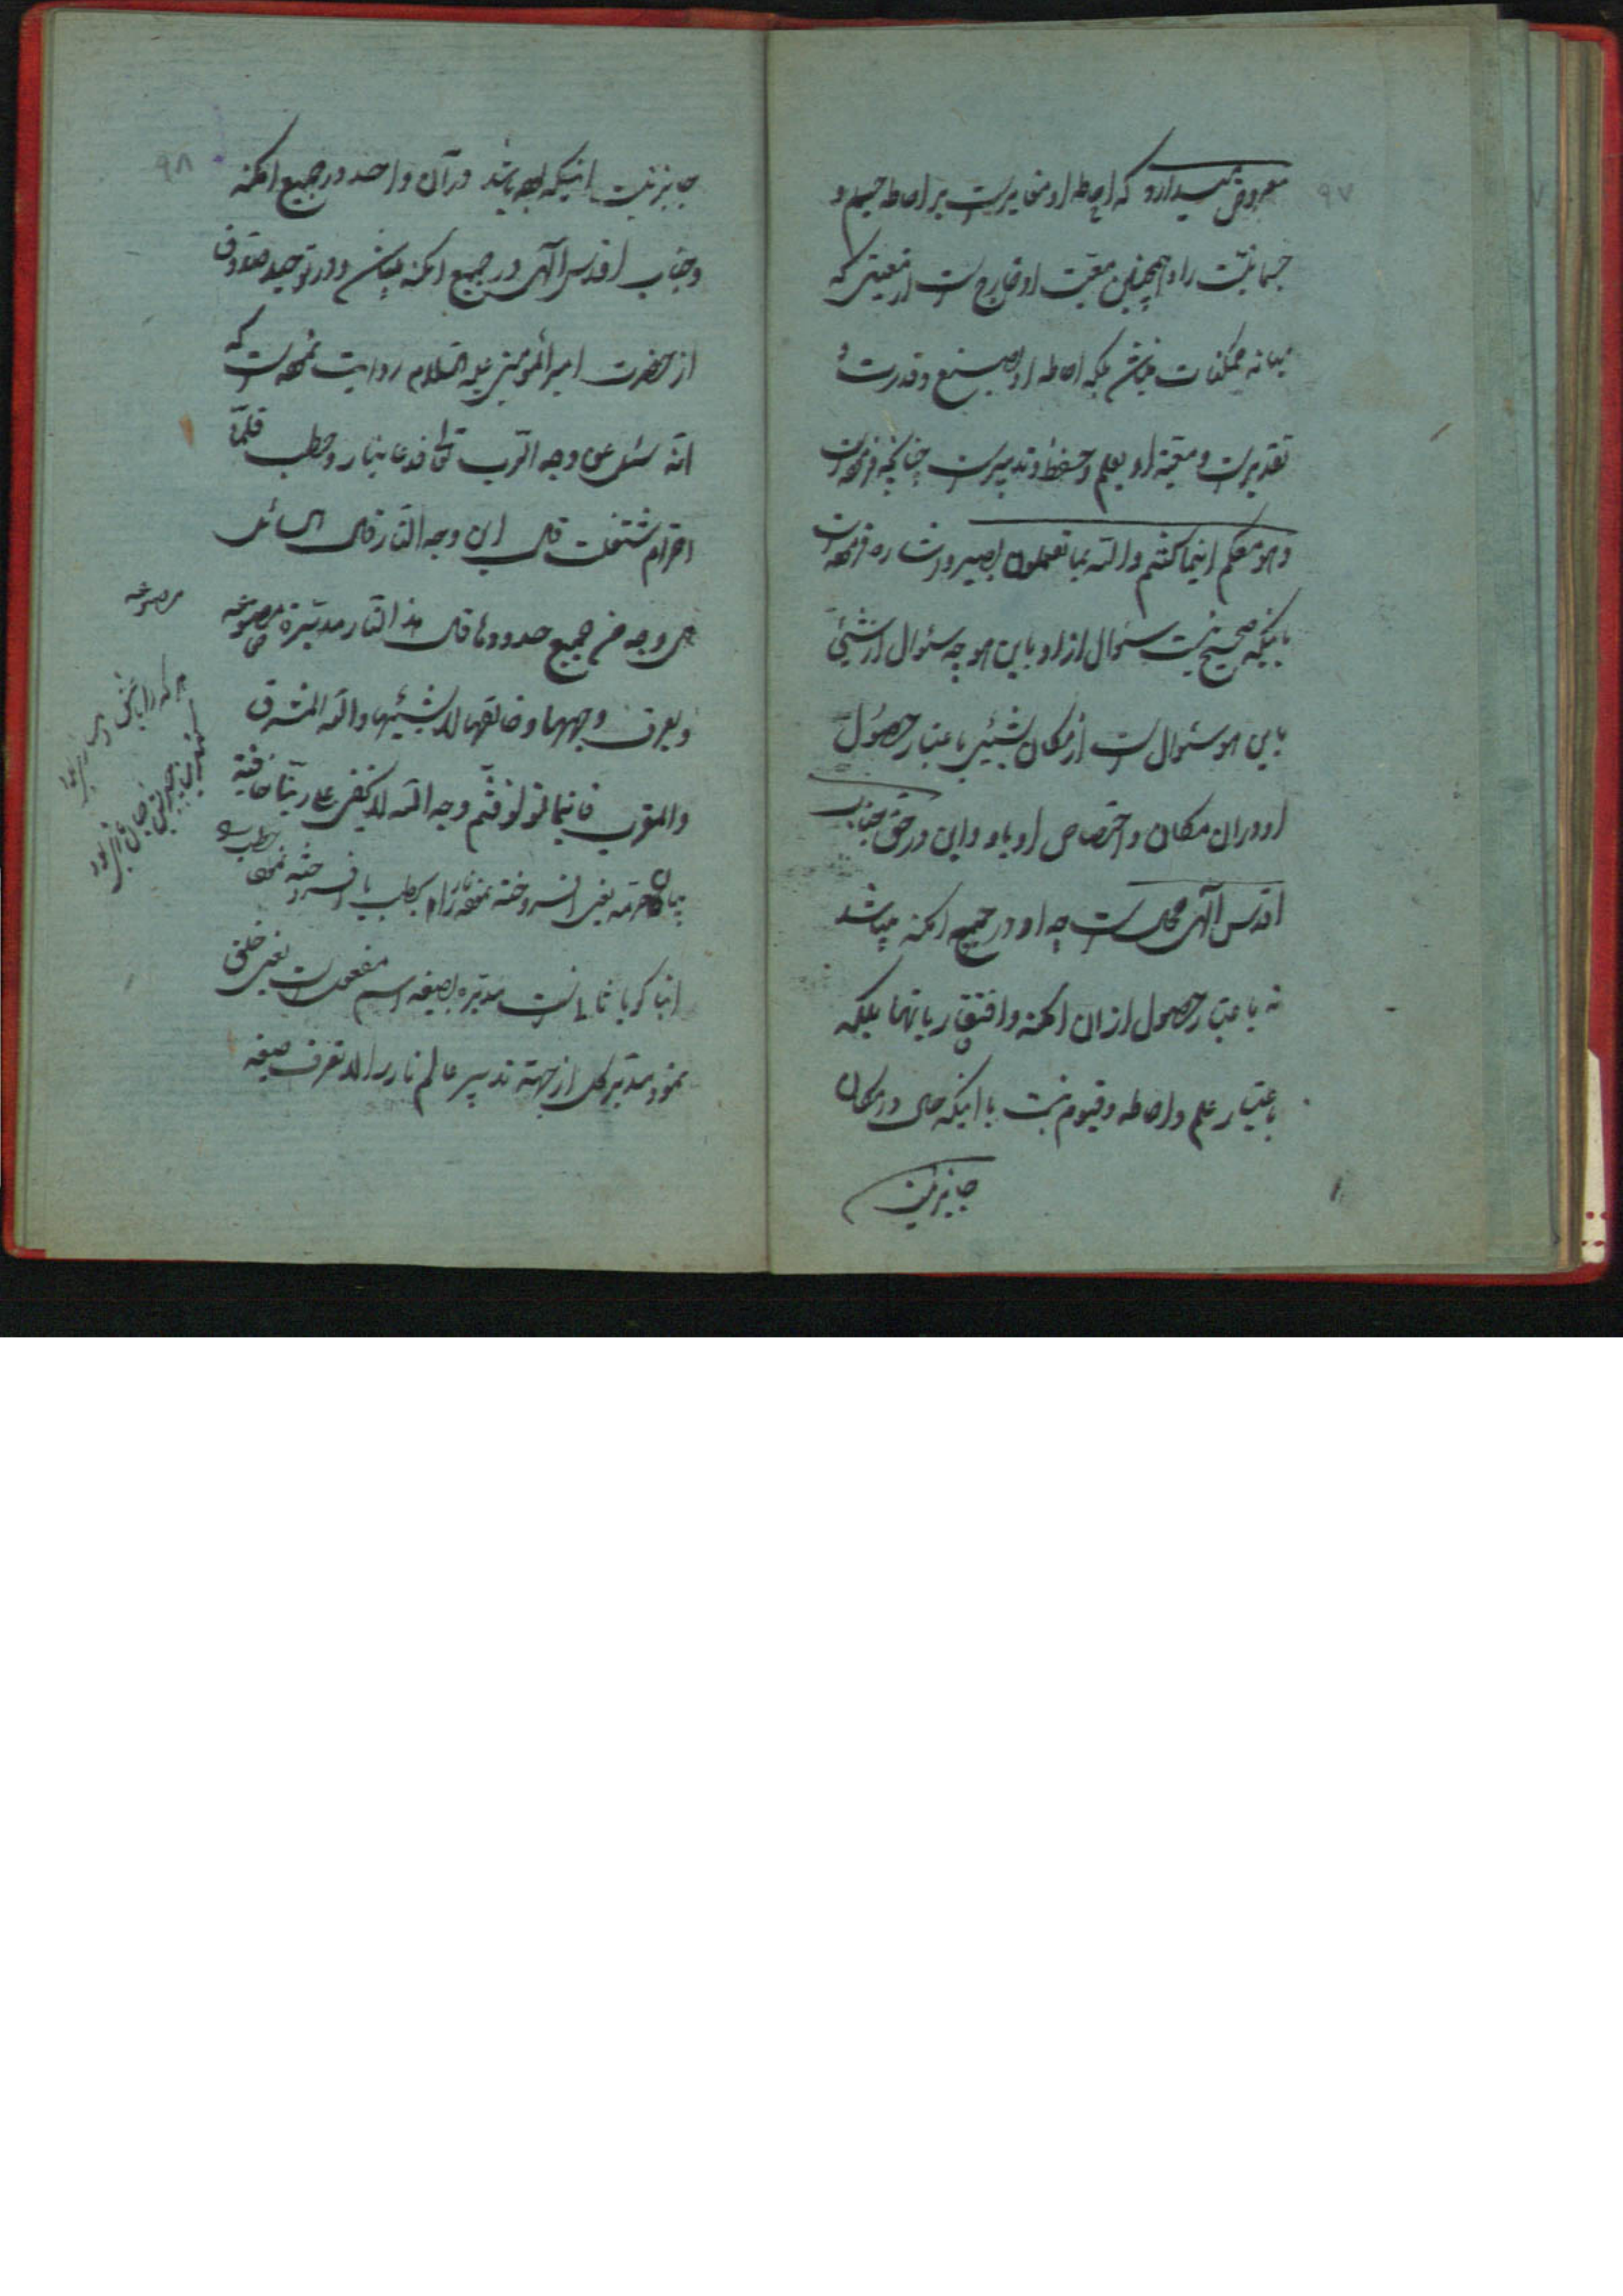 ۹۷
معروض میدارد که احاطه او مغایر است بر احاطه جسم و
جسمانیت را و همچنین معیت او خارج است از معیتی که
میانه ممکنات میباشد بلکه احاطه او بصنع و قدرت و
تقدیر است و معیة او بعلم و حفظ و تدبیر است چنانچه فرموده است
و هو معکم اینما کنتم والله بما تعملون بصیر و اشاره فرموده است
باینکه صحیح نیست سئوال از او باین هو چه سئوال از شیئی
باین هو سئوال است از مکان شیئی باعتبار حصول
او در ان مکان و اختصاص او باو و این در حق جناب
اقدس الهی محال است چه او در جمیع امکنه میباشد
نه باعتبار حصول از ان امکنه و افتقار بانها بلکه
باعتبار علم و احاطه و قیومیت با اینکه حال در مکان
جایز نیست
۹۸
جایز نیست اینکه بوده باشد در آن واحد در جمیع امکنه
و جناب اقدس الهی در جمیع امکنه میباشد و در توحید صدوق
از حضرت امیر المؤمنین علیه السلام روایت نموده است که
انه سئل عن وجه الرب تعالی فدعا بنار و حطب فلما
اضرام اشتعلت قال این وجه النار قال السائل
هی وجه من جمیع حدودها قال هذه النار مدبرة مصنوعة
لا یعرف وجهها و خالقها لا یشبهها ولله المشرق
والمغرب فاینما تولوا فثم وجه الله لا یخفی علی ربنا خافیة
بیان اضرمه یعنی افروخته نمود نار را به حطب یا افروخته نمود حطب را
انبا کویا ثانی است مدبرة بصیغه اسم مفعول است یعنی خلق
نمود مدبر کل از جهة تدبیر عالم نار را لا تعرف صیغه
مصنوعة